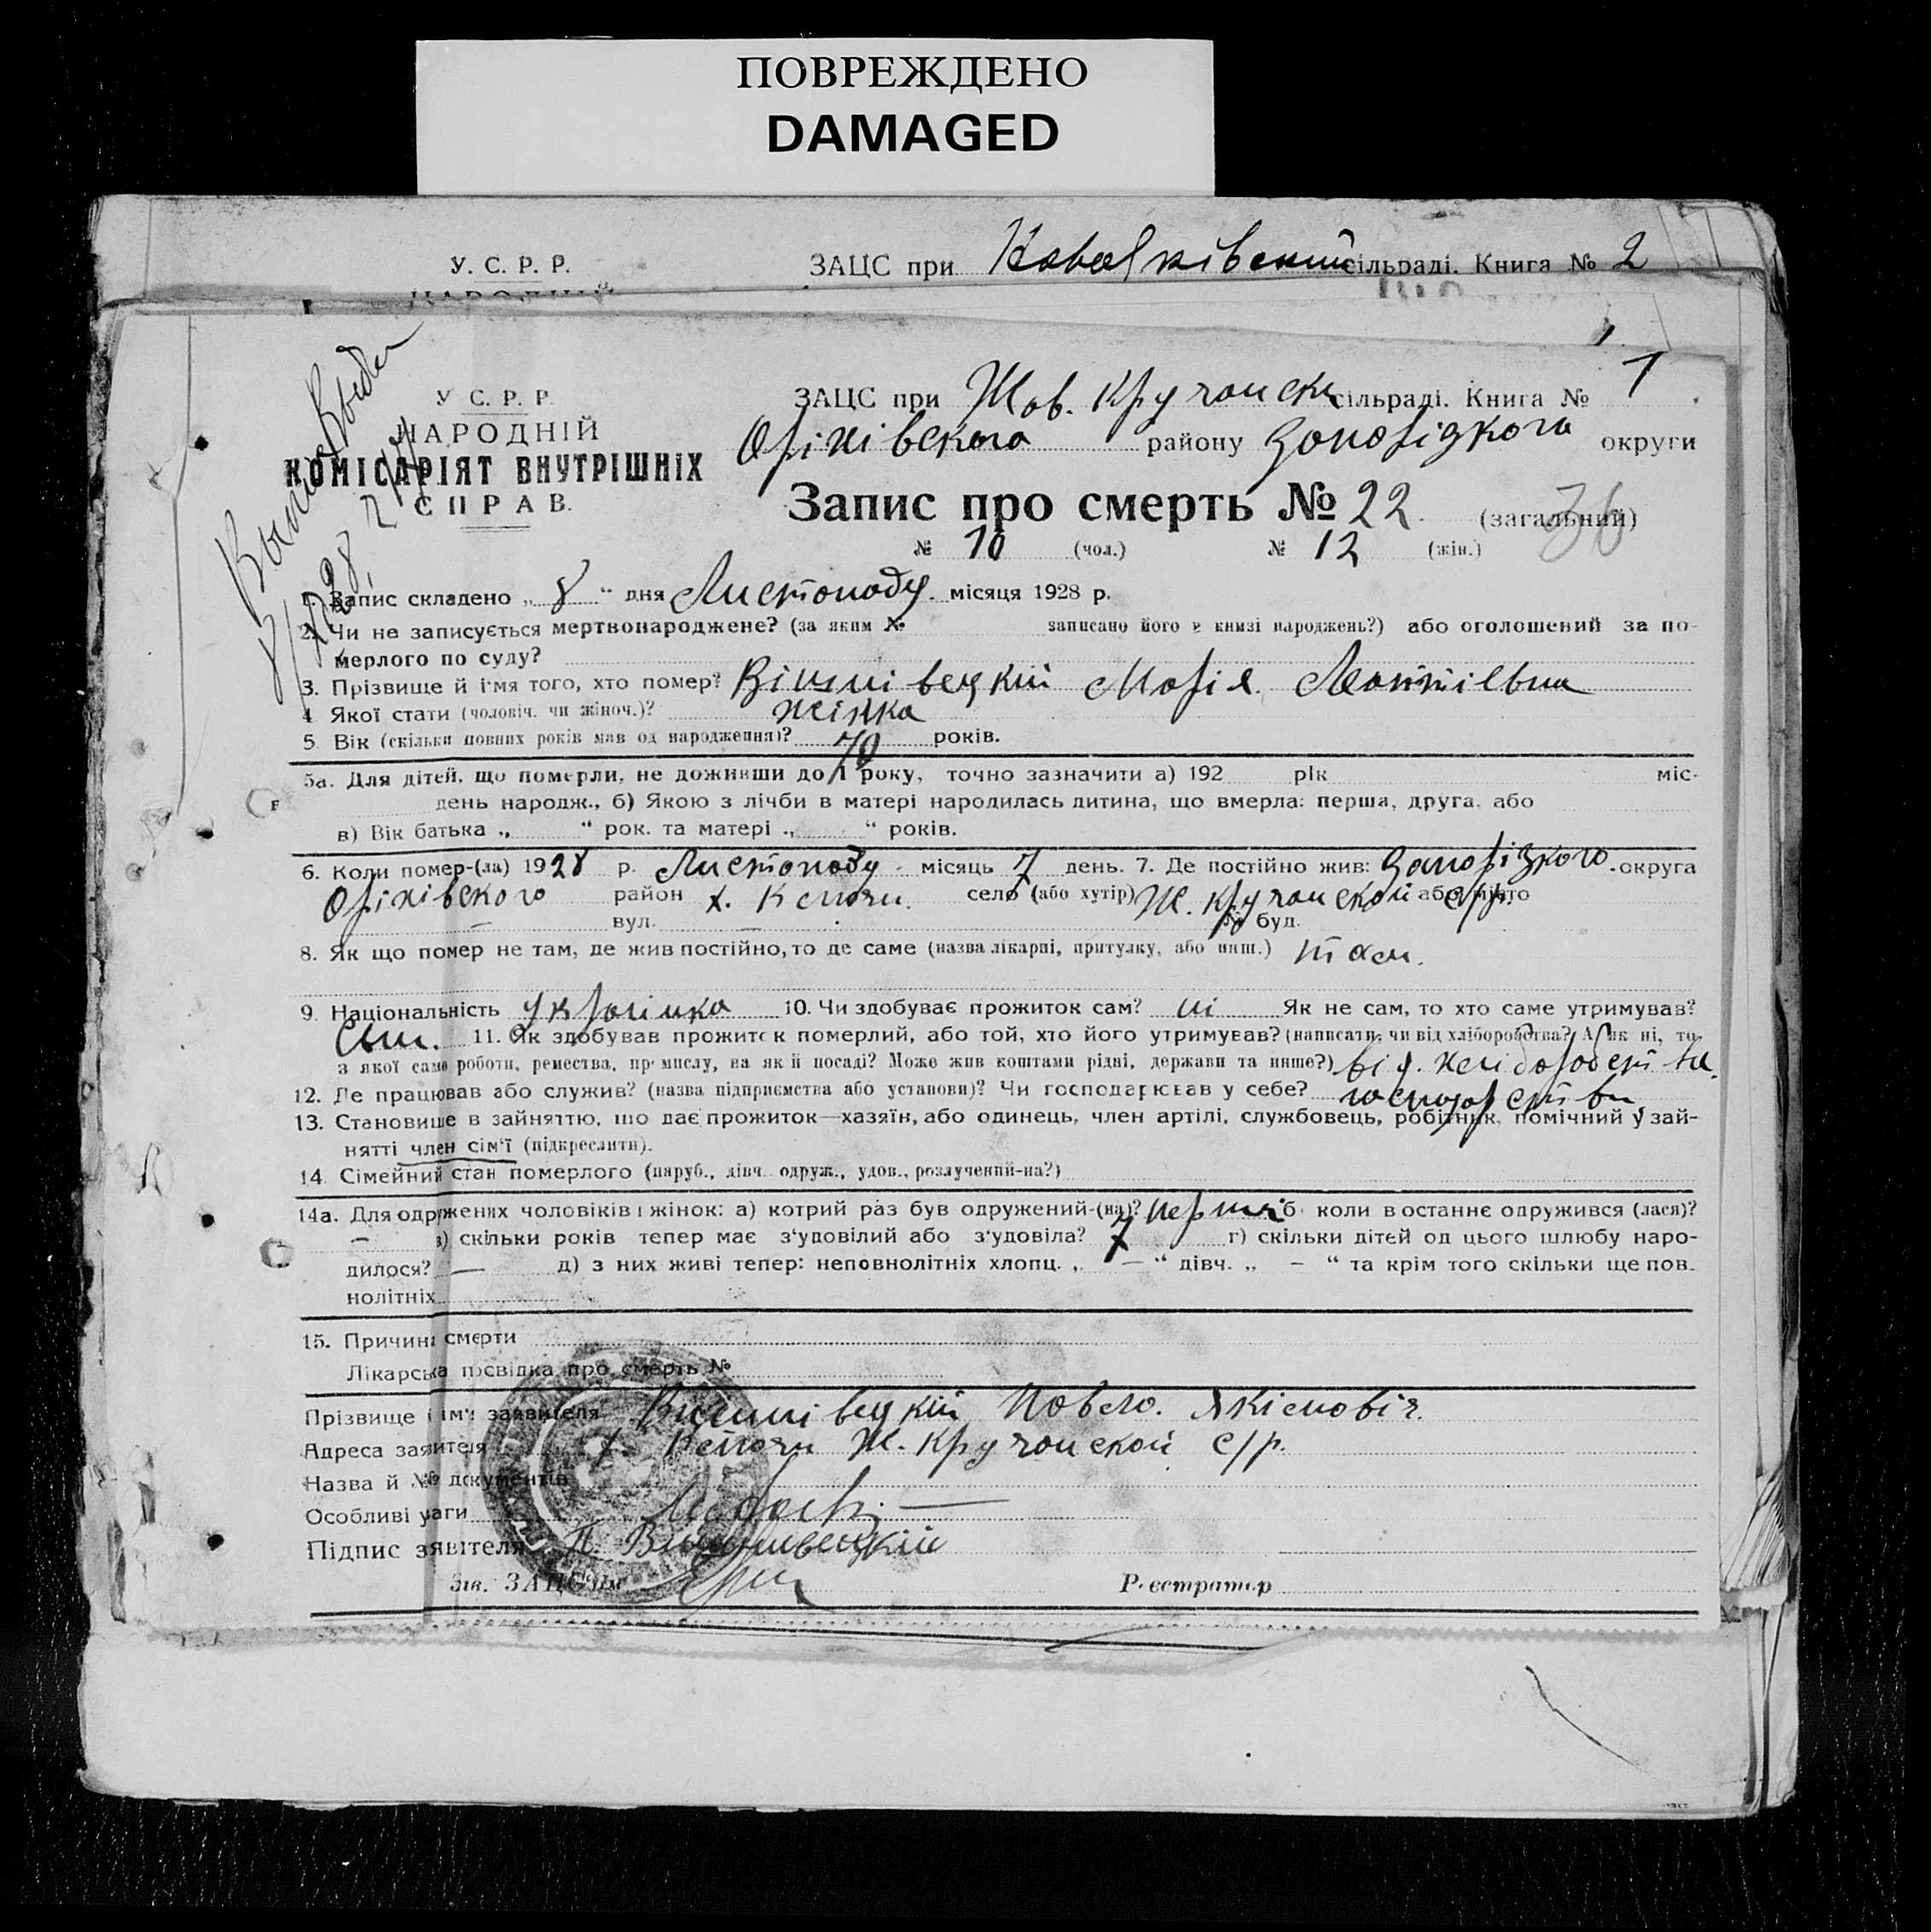 ПОВРЕЖДЕНО
DAMAGED
У. С. Р. Р. ЗАЦС при сільраді. Книга № 2
У С. Р. Р. ЗАЦС при Жов. Кручанск сільраді. Книга № 1
НАРОДНІЙ Оріхівского району Запорізкого округи
КОМІСАРІЯТ ВНУТРІШНІХ
СПРАВ.
Запис про смерть № 22 (загальний) 36
№ 10 (чол.) № 12 (жін.)
1. Запис складено „ 8 “ дня Листопаду. місяця 1928 р.
2. Чи не записується мертвонароджене? (за яким № записано його в книзі народжень?) або оголошений за по-
мерлого по суду?
3. Прізвище й ім'я того, хто помер? Вішнівецкій Марія.
4 Якої стати (чоловіч. чи жіноч.)? жінка
5. Вік (скільки повних років мав од народження)? 70 років.
5а. Для дітей, що померли, не доживши до 1 року, точно зазначити а) 192 рік міс-
день народж., б) Якою з лічби в матері народилась дитина, що вмерла: перша, друга, або
в) Вік батька „ “ рок. та матері „ “ років.
6. Коли помер-(ла) 1928 р. Листопаду місяць 7 день. 7. Де постійно жив: Запорізкого округа
Оріхівского район х. село (або хутір) Ж. Кручанской або місто с/р.
— вул. — № буд.
8. Як що помер не там, де жив постійно, то де саме (назва лікарні, притулку, або инш.) там.
9. Національність Українка 10. Чи здобуває прожиток сам? ні Як не сам, то хто саме утримував?
Сын. 11. Як здобував прожиток померлий, або той, хто його утримував? (написати, чи від хліборобства? А як ні, то
з якої саме роботи, ремества, промислу, на якій посаді? Може жив коштами рідні, держави та инше?) від хліборобства.
12. Де працював або служив? (назва підприємства або установи)? Чи господарював у себе?
13. Становище в зайняттю, що дає прожиток—хазяїн, або одинець, член артілі, службовець, робітник, помічний у зай-
нятті член сім'ї (підкреслити).
14. Сімейний стан померлого (паруб., дівч. одруж., удов., розлучений-на?)
14а. Для одружених чоловіків і жінок: а) котрий раз був одружений-(на)? перший б. коли востаннє одружився (лася)?
— в) скільки років тепер має з'удовілий або з'удовіла? 7 г) скільки дітей од цього шлюбу наро-
дилося? — д) з них живі тепер: неповнолітніх хлопц. „ — “ дівч. „ — “ та крім того скільки ще пов-
нолітніх
15. Причина смерти
Лікарська посвідка про смерть №
Прізвище і ім'я заявителя Вишнівецкій Павло. Якімовіч.
Адреса заявителя х. Ж. Кручанской с/р.
Назва й № документів
Особливі уваги
Підпис заявителя П. Вишнивецкий
Зав. ЗАЦС'ом Реєстратор